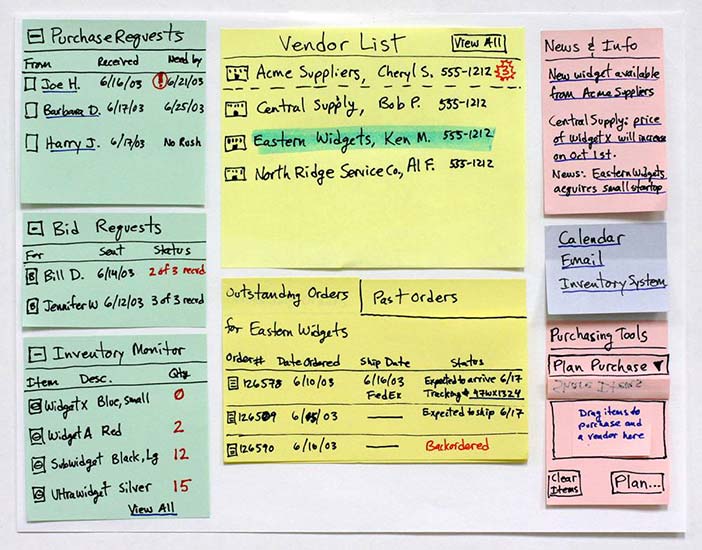 Purchase Requests
From Received Need by
Joe H. 6/16/03 ! 6/21/03
Barbara D. 6/17/03 6/25/03
Harry J. 6/17/03 No Rush
Bid Requests
For Sent Status
B Bill D. 6/14/03 2 of 3 recvd
B Jennifer W 6/12/03 3 of 3 recvd
Inventory Monitor
Item Desc. Qty
Widget X Blue, Small 0
Widget A Red 2
Subwidget Black, Lg 12
Ultrawidget Silver 15
View All
Vendor List View All
Acme Suppliers, Cheryl S. 555-1212 3
Central Supply, Bob P. 555-1212
Eastern Widgets, Ken M. 555-1212
North Ridge Service Co, Al F. 555-1212
Outstanding Orders Past Orders
for Eastern Widgets
Order# Date Ordered Ship Date Status
126578 6/10/03 6/16/03 Expected to arrive 6/17
FedEx Tracking # 47WX1324
126509 6/05/03 Expected to ship 6/17
126590 6/10/03 Backordered
News & Info
New widget available
from Acme Suppliers
Central Supply: price
of Widget X will increase
on Oct 1st.
News: Eastern Widgets
acquires small startup
Calendar
Email
Inventory System
Purchasing Tools
Plan Purchase ▼
Drag items to
purchase and
a vendor here
Clear
Items
Plan...